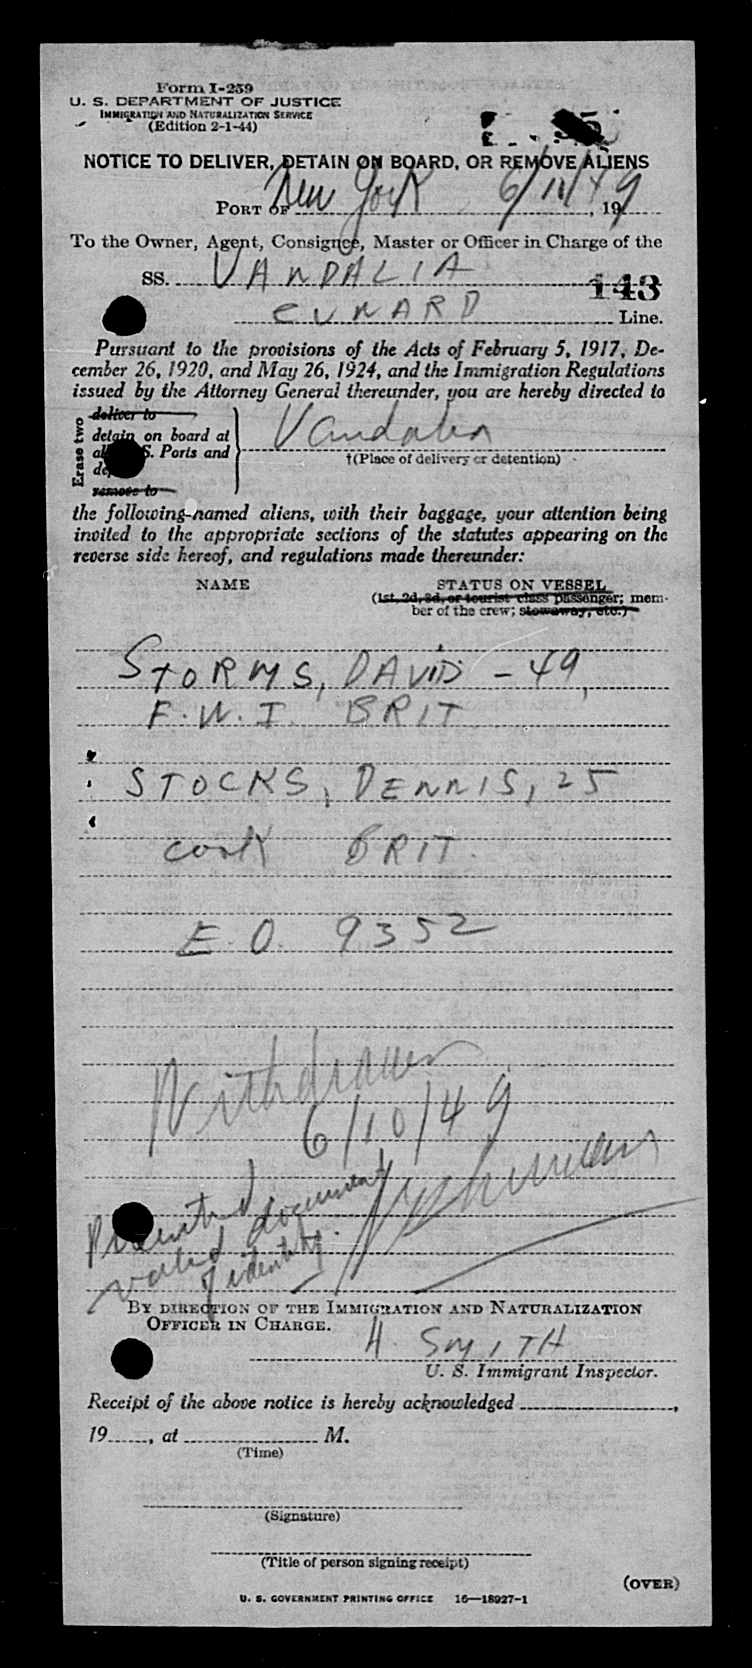 Form I-259
U. S. DEPARTMENT OF JUSTICE
IMMIGRATION AND NATURALIZATION SERVICE
(Edition 2-1-44)
NOTICE TO DELIVER, DETAIN ON BOARD, OR REMOVE ALIENS
PORT OF New York 6/10/49, 19
To the Owner, Agent, Consignee, Master or Officer in Charge of the
SS. VANDALIA
143
CUNARD Line.
Pursuant to the provisions of the Acts of February 5, 1917, De-
cember 26, 1920, and May 26, 1924, and the Immigration Regulations
issued by the Attorney General thereunder, you are hereby directed to
Erase two
deliver to
detain on board at
all U. S. Ports and
remove to
Vandalia
†(Place of delivery or detention)
the following-named aliens, with their baggage, your attention being
invited to the appropriate sections of the statutes appearing on the
reverse side hereof, and regulations made thereunder:
NAME STATUS ON VESSEL
(1st, 2d, 3d, or tourist class passenger; mem-
ber of the crew; stowaway, etc.)
STORMS, DAVID - 49,
F.W.T. BRIT
STOCKS, DENNIS, 25
cook BRIT.
E.O. 9352
Withdrawn
6/10/49
Presented
valid document
of identity.
BY DIRECTION OF THE IMMIGRATION AND NATURALIZATION
OFFICER IN CHARGE.
H. SMITH
U. S. Immigrant Inspector.
Receipt of the above notice is hereby acknowledged ,
19 , at M.
(Time)
(Signature)
(Title of person signing receipt)
(OVER)
U. S. GOVERNMENT PRINTING OFFICE 16—18927-1